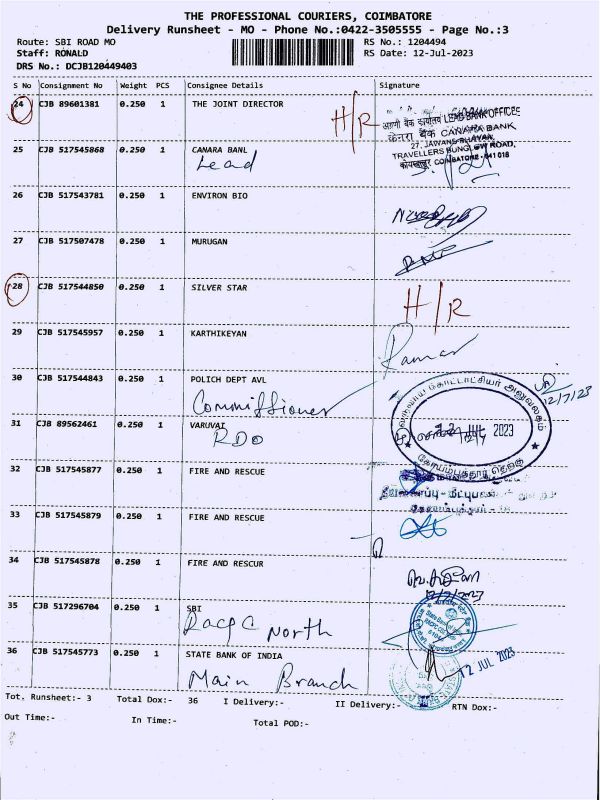 THE PROFESSIONAL COURIERS, COIMBATORE
Delivery Runsheet - MO - Phone No.:0422-3505555 - Page No.:3
Route: SBI ROAD MO RS No.: 1204494
Staff: RONALD RS Date: 12-Jul-2023
DRS No.: DCJB120449403
S No Consignment No Weight PCS Consignee Details Signature
24 CJB 89601381 0.250 1 THE JOINT DIRECTOR H/R
LEAD BANK OFFICE
केनरा बैंक CANARA BANK
27, JAWANS BHAVAN,
TRAVELLERS BUNGLOW ROAD,
COIMBATORE - 641 018
25 CJB 517545868 0.250 1 CANARA BANL
Lead
26 CJB 517543781 0.250 1 ENVIRON BIO
27 CJB 517507478 0.250 1 MURUGAN
28 CJB 517544850 0.250 1 SILVER STAR H/R
29 CJB 517545957 0.250 1 KARTHIKEYAN
Raman
30 CJB 517544843 0.250 1 POLICH DEPT AVL
Commissioner
12/7/23
31 CJB 89562461 0.250 1 VARUVAI
RDO
2023
32 CJB 517545877 0.250 1 FIRE AND RESCUE
33 CJB 517545879 0.250 1 FIRE AND RESCUE
34 CJB 517545878 0.250 1 FIRE AND RESCUER
35 CJB 517296704 0.250 1 SBI
Racpc North
36 CJB 517545773 0.250 1 STATE BANK OF INDIA
12 JUL 2023
Main Branch
Tot. Runsheet:- 3 Total Dox:- 36 I Delivery:- II Delivery:- RTN Dox:-
Out Time:- In Time:- Total POD:-